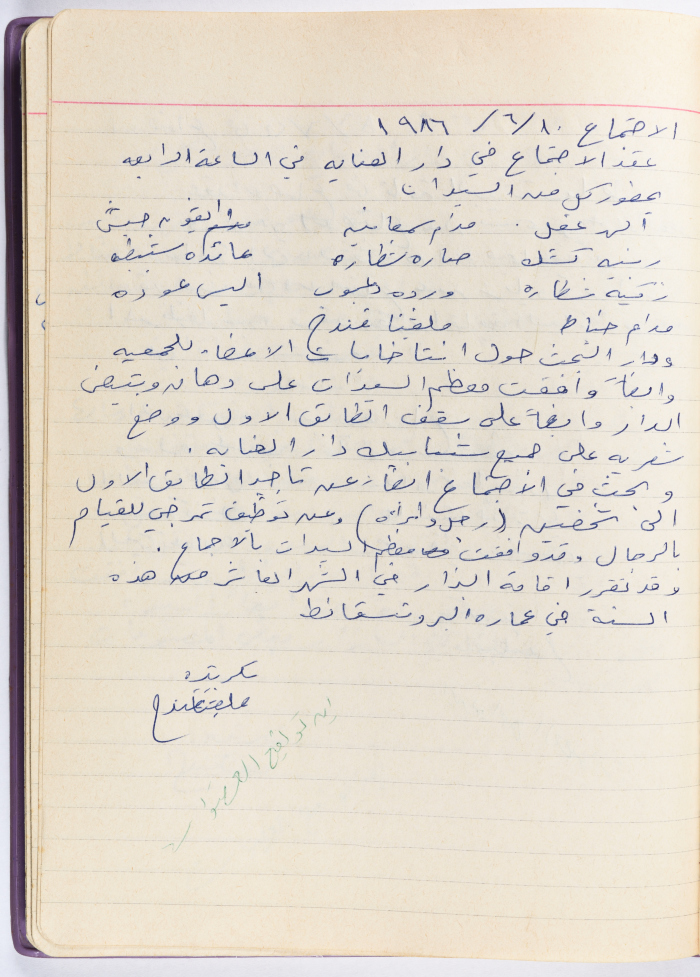 الاجتماع ١٠/٦/١٩٨٦
عقد الاجتماع في دار العنايه في الساعة الرابعه
بحضور كل من السيدات
الهر عقل . مدام سمعانيه مدام انطون حبش
رينيه كتشك ساره نظاره عائده سنبطه
زكية نظاره ورده دعبوب اليس عوده
مدام خياط ملفينا قندح
ودار البحث حول انتاخابات الاعضاء للجمعيه
وايضاً وافقت معظم السيدات على دهان وتبيض
الدار وايضاً على سقف الطابق الاول ووضع
شعريه على جميع شبابيك دار العنايه .
وبحث في الاجتماع ايضاً عن تاجير الطابق الاول
الى شخصين (رجل وامرأة) وعن توظيف تمرجي للقيام
بالرجال وقد وافقت معظم السيدات بالاجماع .
وقد تقرر اقامة البزار في الشهر العاشر من هذه
السنة في عماره البروتستانط
سكرتيره
ملفينا قندح
اين تواقيع العضوات